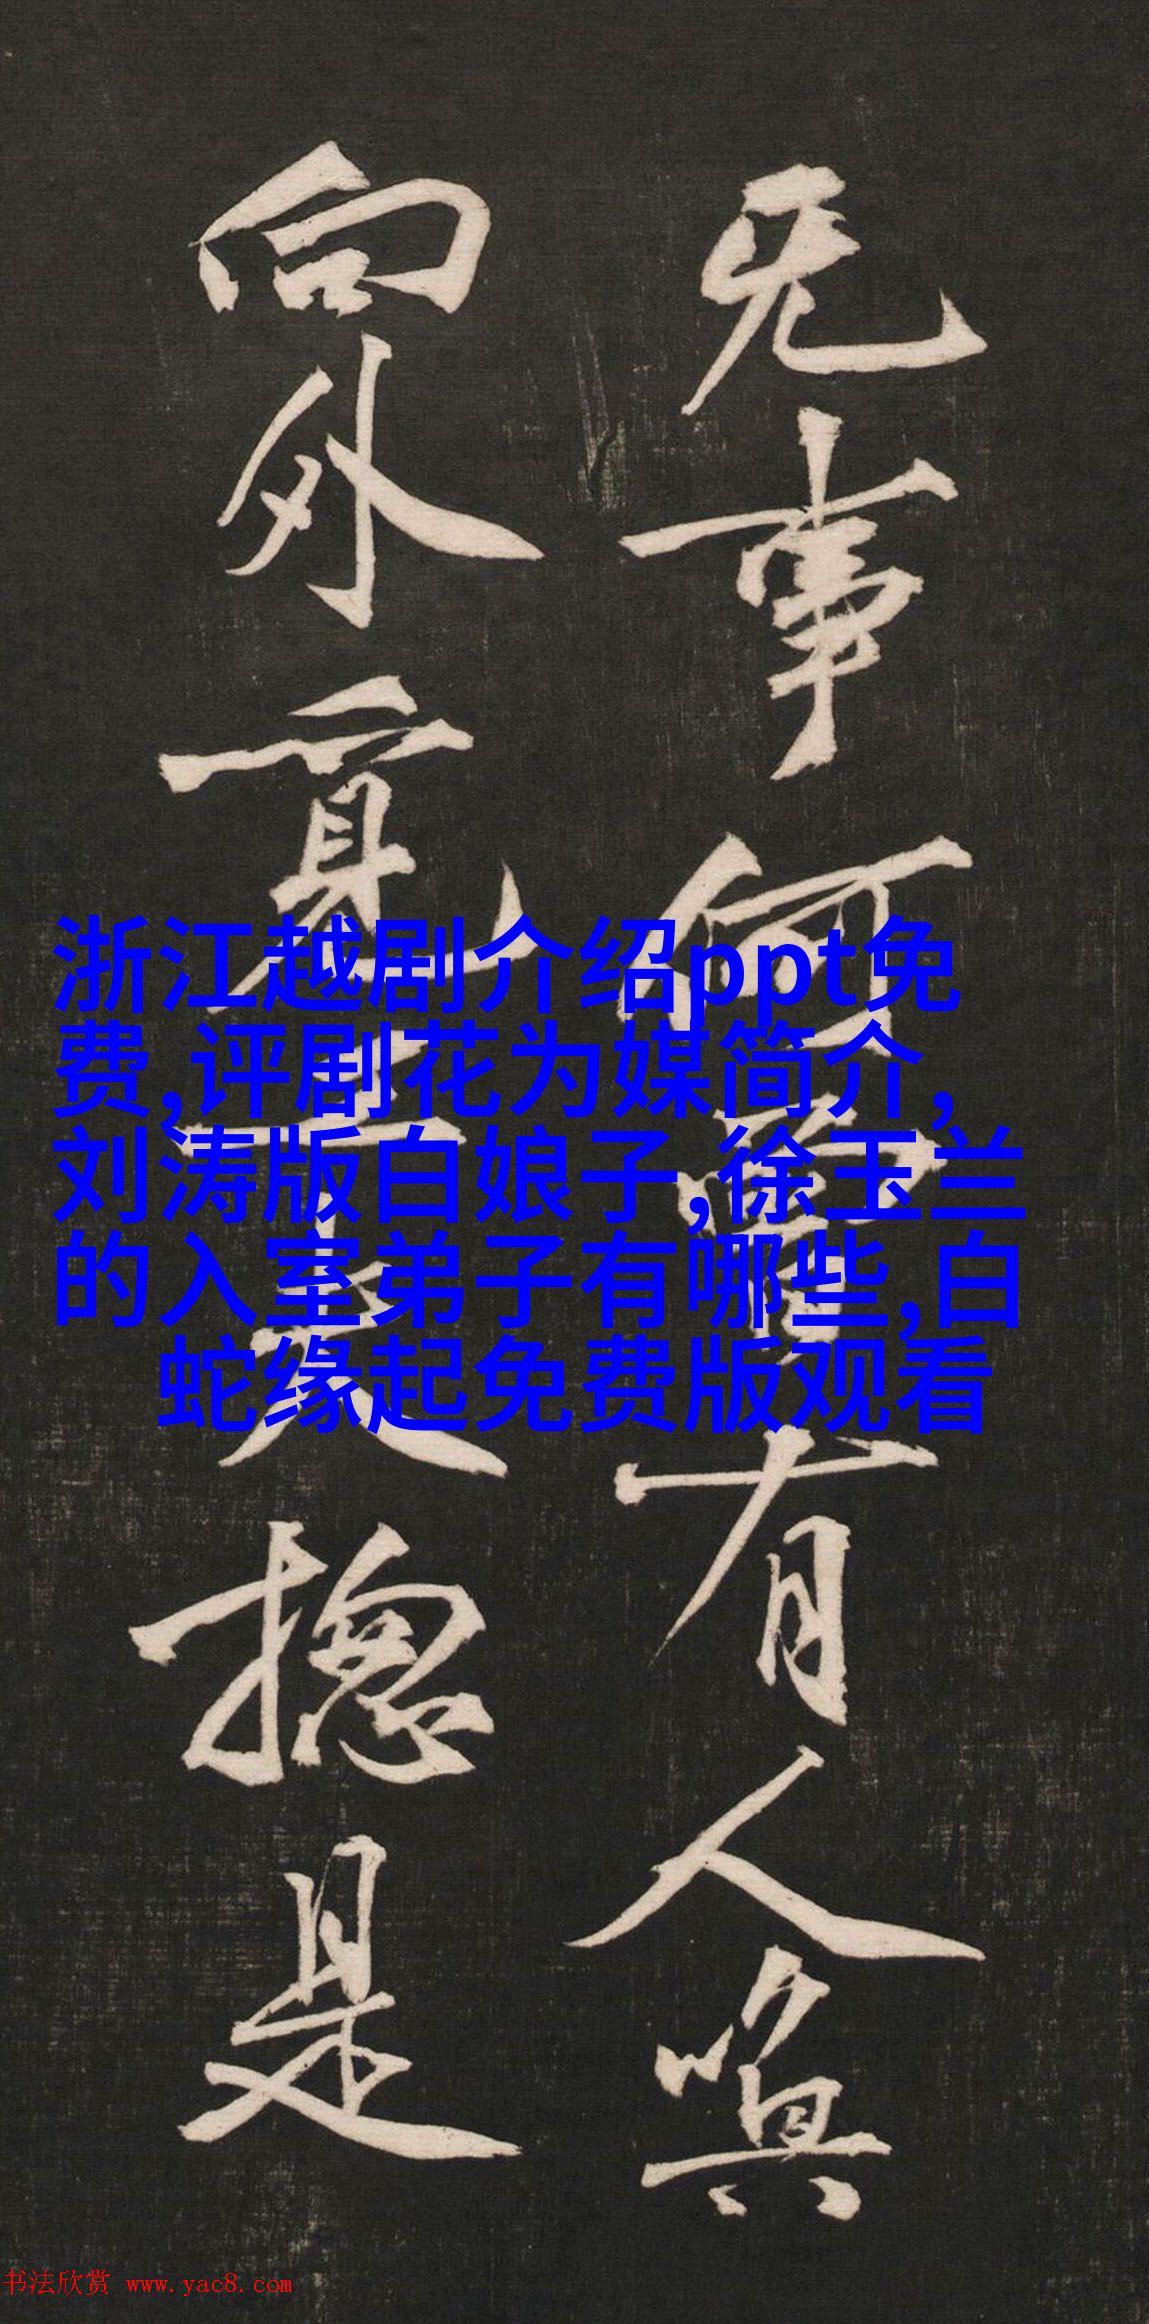 无事何
有人嗔
向外覓工夫揔是
浙江越剧介绍ppt免
费,评剧花为媒简介,
刘涛版白娘子,徐玉兰
的入室弟子有哪些,白
蛇缘起免费版观看
书法欣赏 www.yac8.com